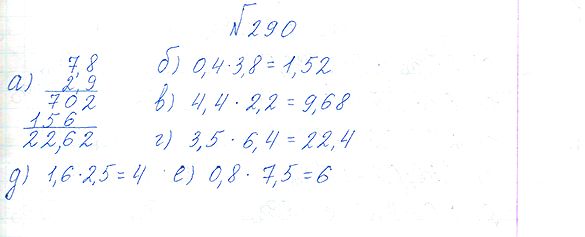 №290
а) 7,8
2,9
702
156
22,62
б) 0,4·3,8=1,52
в) 4,4·2,2=9,68
г) 3,5·6,4=22,4
д) 1,6·2,5=4 е) 0,8·7,5=6